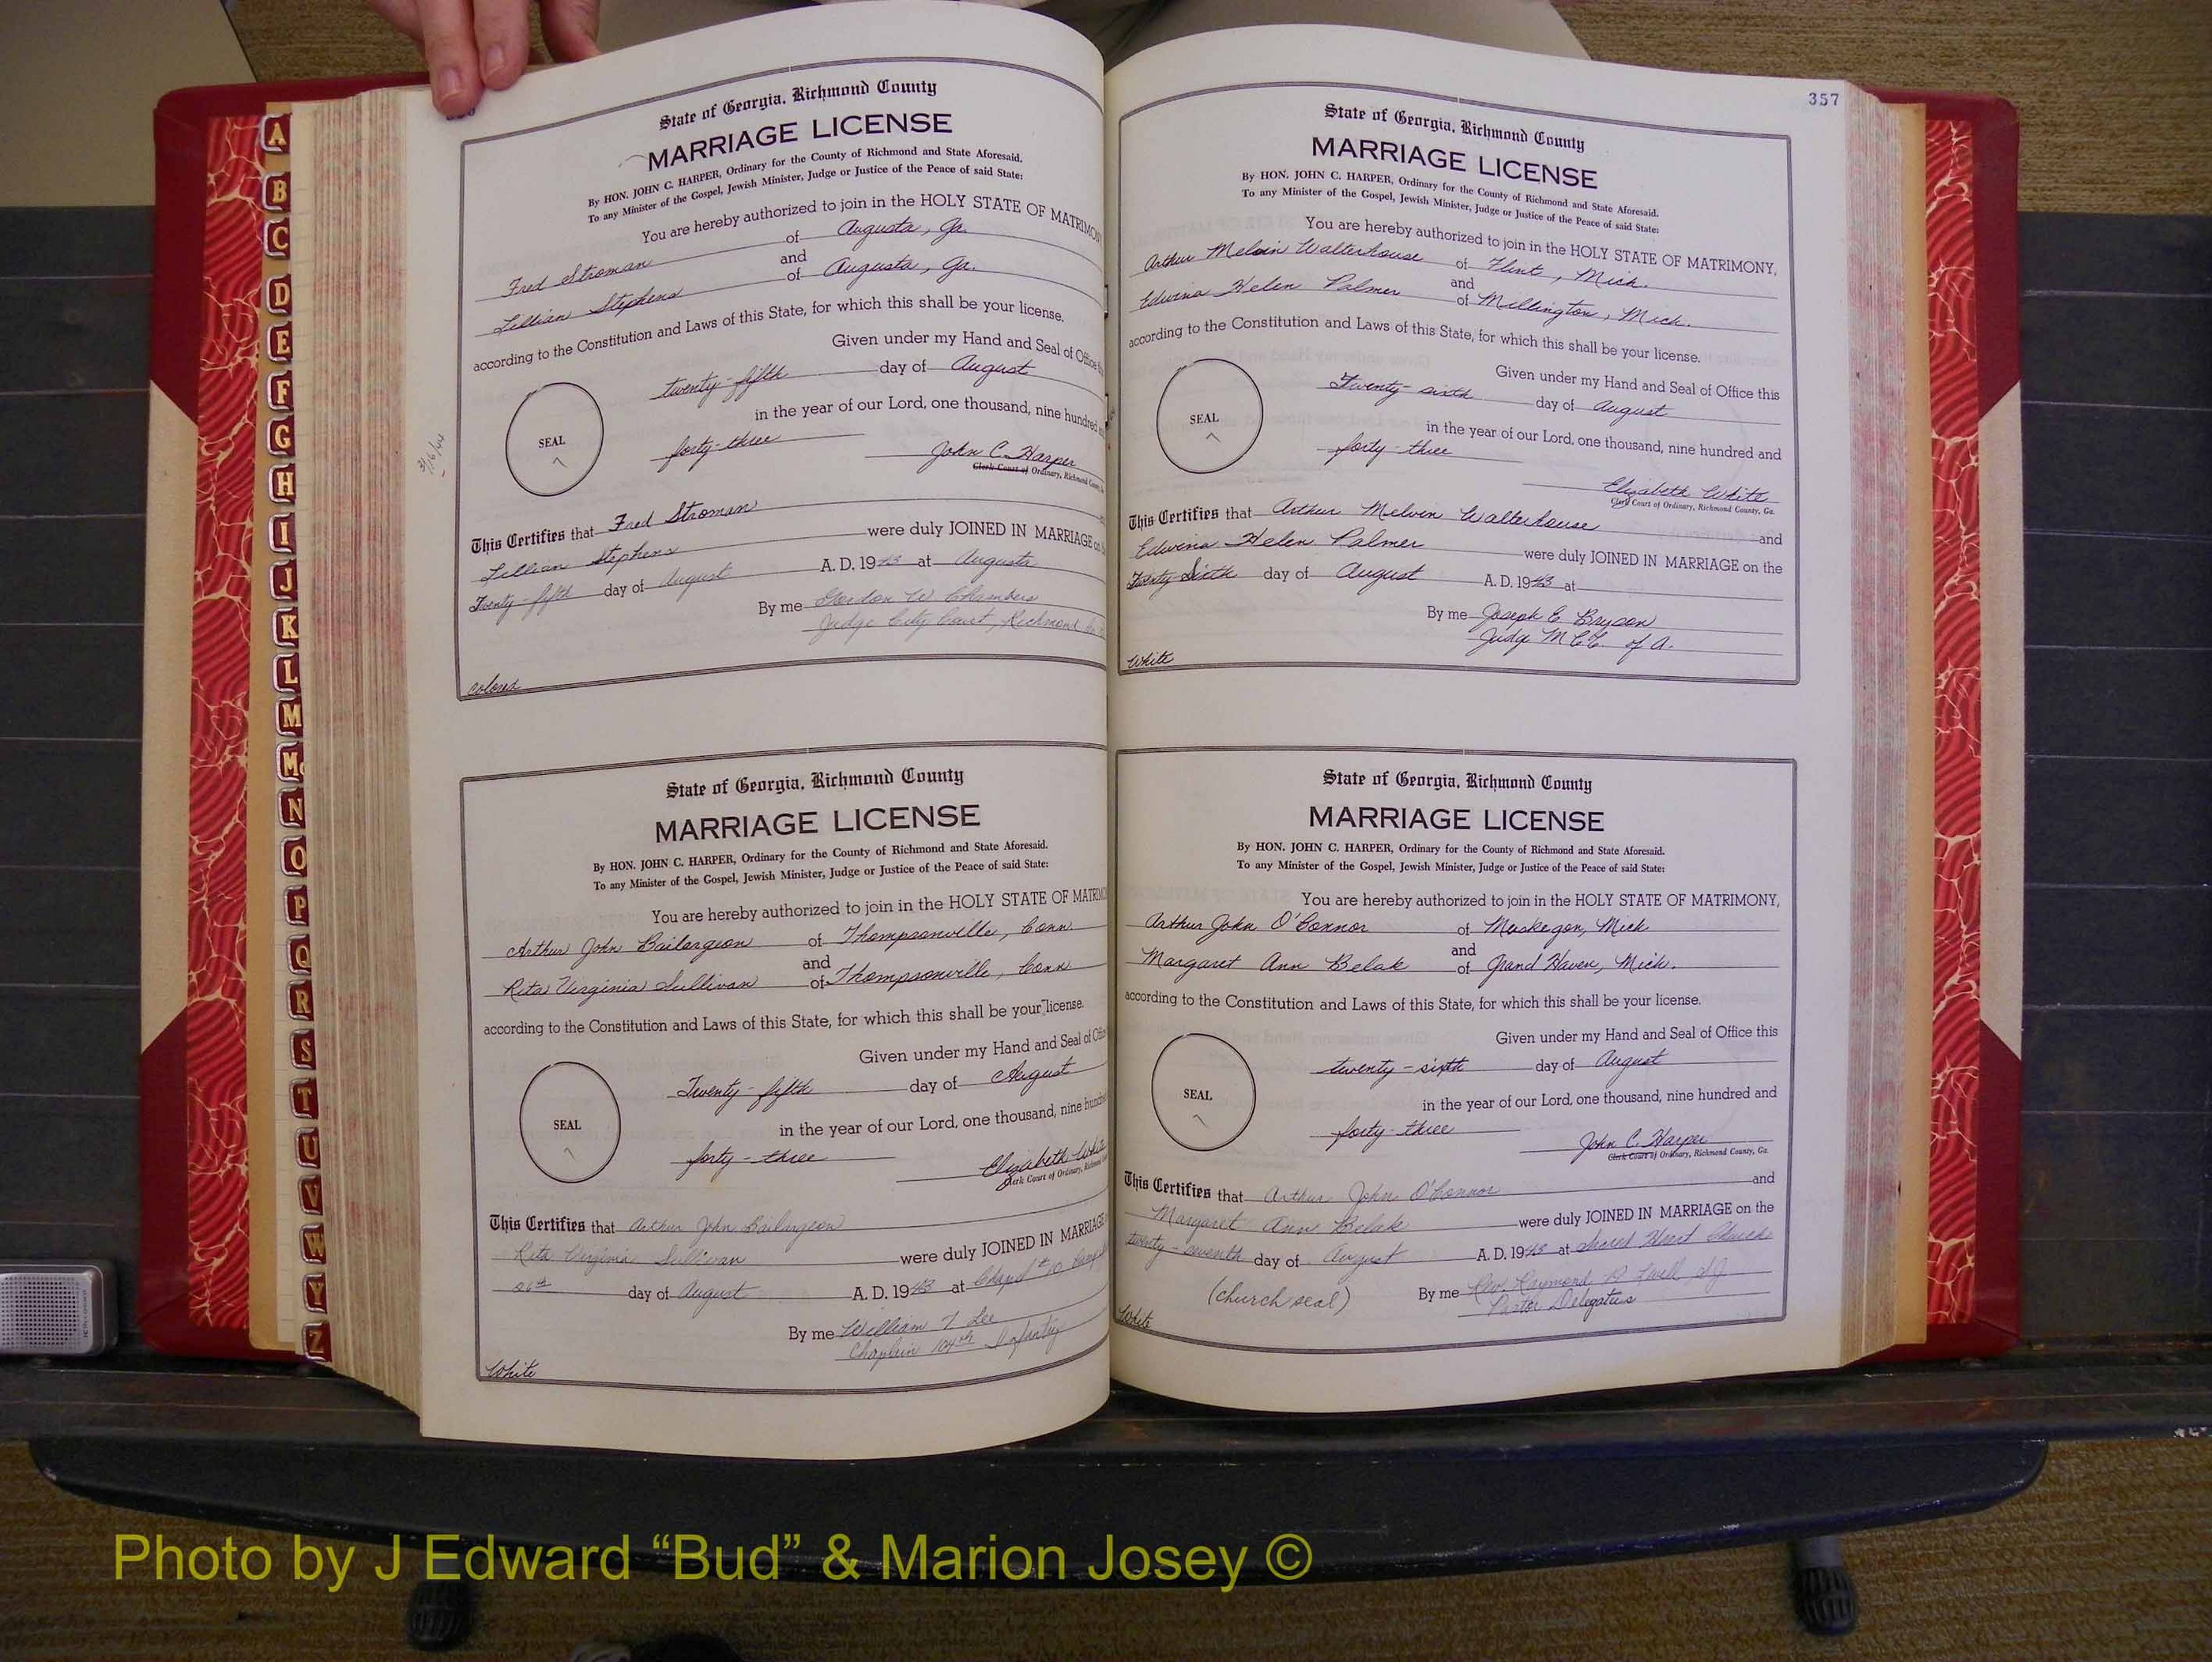 A
B
C
D
E
F
G
H
I
J
K
L
M
Mc
N
O
P
Q
R
S
T
U
V
W
Y
Z
State of Georgia, Richmond County
MARRIAGE LICENSE
By HON. JOHN C. HARPER, Ordinary for the County of Richmond and State Aforesaid.
To any Minister of the Gospel, Jewish Minister, Judge or Justice of the Peace of said State:
You are hereby authorized to join in the HOLY STATE OF MATRIMONY
Fred Stroman of Augusta, Ga.
and
Lillian Stephens of Augusta, Ga.
according to the Constitution and Laws of this State, for which this shall be your license.
Given under my Hand and Seal of Office
twenty-fifth day of August
SEAL
in the year of our Lord, one thousand, nine hundred
forty-three
John C. Harper
Clerk Court of Ordinary, Richmond
This Certifies that Fred Stroman
Lillian Stephens were duly JOINED IN MARRIAGE on
Twenty-fifth day of August A. D. 1943 at Augusta
By me Gordon W. Chambers
Judge City Court, Richmond
Colored
State of Georgia, Richmond County
MARRIAGE LICENSE
By HON. JOHN C. HARPER, Ordinary for the County of Richmond and State Aforesaid.
To any Minister of the Gospel, Jewish Minister, Judge or Justice of the Peace of said State:
You are hereby authorized to join in the HOLY STATE OF
Arthur John Bailargeon of Thompsonville, Conn
and
Rita Virginia Sullivan of Thompsonville, Conn
according to the Constitution and Laws of this State, for which this shall be your license.
Given under my Hand and Seal of
Twenty-fifth day of August
SEAL
in the year of our Lord, one thousand, nine
forty-three
Elizabeth White
Clerk Court of Ordinary,
This Certifies that Arthur John Bailargeon
Rita Virginia Sullivan were duly JOINED IN MARRIAGE
26th day of August A. D. 1943 at Chapel #10
By me William T Lee
Chaplain 104th Infantry
White
357
State of Georgia, Richmond County
MARRIAGE LICENSE
By HON. JOHN C. HARPER, Ordinary for the County of Richmond and State Aforesaid.
To any Minister of the Gospel, Jewish Minister, Judge or Justice of the Peace of said State:
You are hereby authorized to join in the HOLY STATE OF MATRIMONY,
Arthur Melvin Walterhouse of Flint, Mich.
and
Edwina Helen Palmer of Millington, Mich.
according to the Constitution and Laws of this State, for which this shall be your license.
Given under my Hand and Seal of Office this
Twenty-sixth day of August
SEAL
in the year of our Lord, one thousand, nine hundred and
forty-three
Elizabeth White
Clerk Court of Ordinary, Richmond County, Ga.
This Certifies that Arthur Melvin Walterhouse and
Edwina Helen Palmer were duly JOINED IN MARRIAGE on the
Twenty Sixth day of August A. D. 1943 at
By me Joseph E. Bryson
Judge M.C.C. of A.
White
State of Georgia, Richmond County
MARRIAGE LICENSE
By HON. JOHN C. HARPER, Ordinary for the County of Richmond and State Aforesaid.
To any Minister of the Gospel, Jewish Minister, Judge or Justice of the Peace of said State:
You are hereby authorized to join in the HOLY STATE OF MATRIMONY,
Arthur John O'Connor of Muskegon, Mich
and
Margaret Ann Belak of Grand Haven, Mich.
according to the Constitution and Laws of this State, for which this shall be your license.
Given under my Hand and Seal of Office this
twenty-sixth day of August
SEAL
in the year of our Lord, one thousand, nine hundred and
forty-three
John C. Harper
Clerk Court of Ordinary, Richmond County, Ga.
This Certifies that Arthur John O'Connor and
Margaret Ann Belak were duly JOINED IN MARRIAGE on the
twenty-seventh day of August A. D. 1943 at Sacred Heart Church
(church seal) By me Rev. Raymond SJ
Pastor Delegatus
White
Photo by J Edward “Bud” & Marion Josey ©